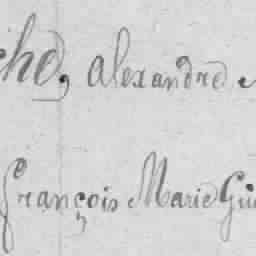 ché, alexandre
François Marie Gui